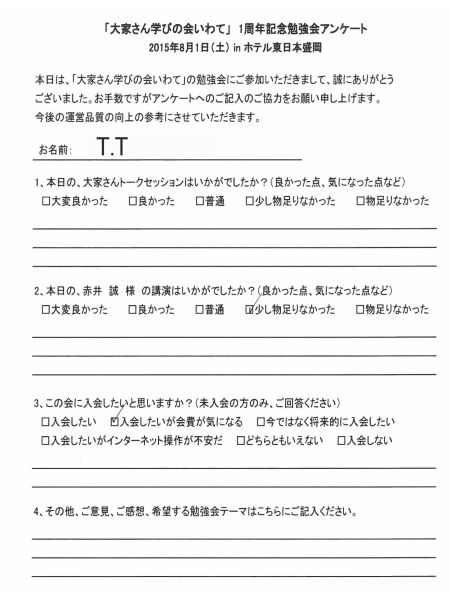 「大家さん学びの会いわて」 1周年記念勉強会アンケート
2015年8月1日(土) in ホテル東日本盛岡
本日は、「大家さん学びの会いわて」の勉強会にご参加いただきまして、誠にありがとう
ございました。お手数ですがアンケートへのご記入のご協力をお願い申し上げます。
今後の運営品質の向上の参考にさせていただきます。
お名前: T.T
1、本日の、大家さんトークセッションはいかがでしたか?(良かった点、気になった点など)
□大変良かった □良かった □普通 □少し物足りなかった □物足りなかった
2、本日の、赤井 誠 様 の講演はいかがでしたか?(良かった点、気になった点など)
□大変良かった □良かった □普通 ☑少し物足りなかった □物足りなかった
3、この会に入会したいと思いますか?(未入会の方のみ、ご回答ください)
□入会したい ☑入会したいが会費が気になる □今ではなく将来的に入会したい
□入会したいがインターネット操作が不安だ □どちらともいえない □入会しない
4、その他、ご意見、ご感想、希望する勉強会テーマはこちらにご記入ください。